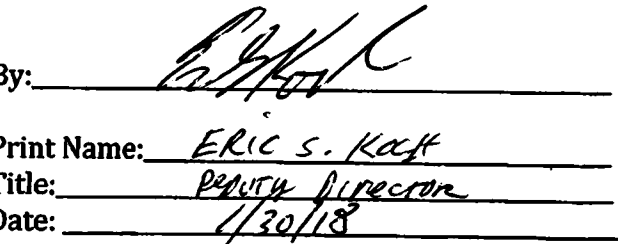 By:
Print Name: ERIC S.
Title: DEPUTY DIRECTOR
Date: 1/30/18